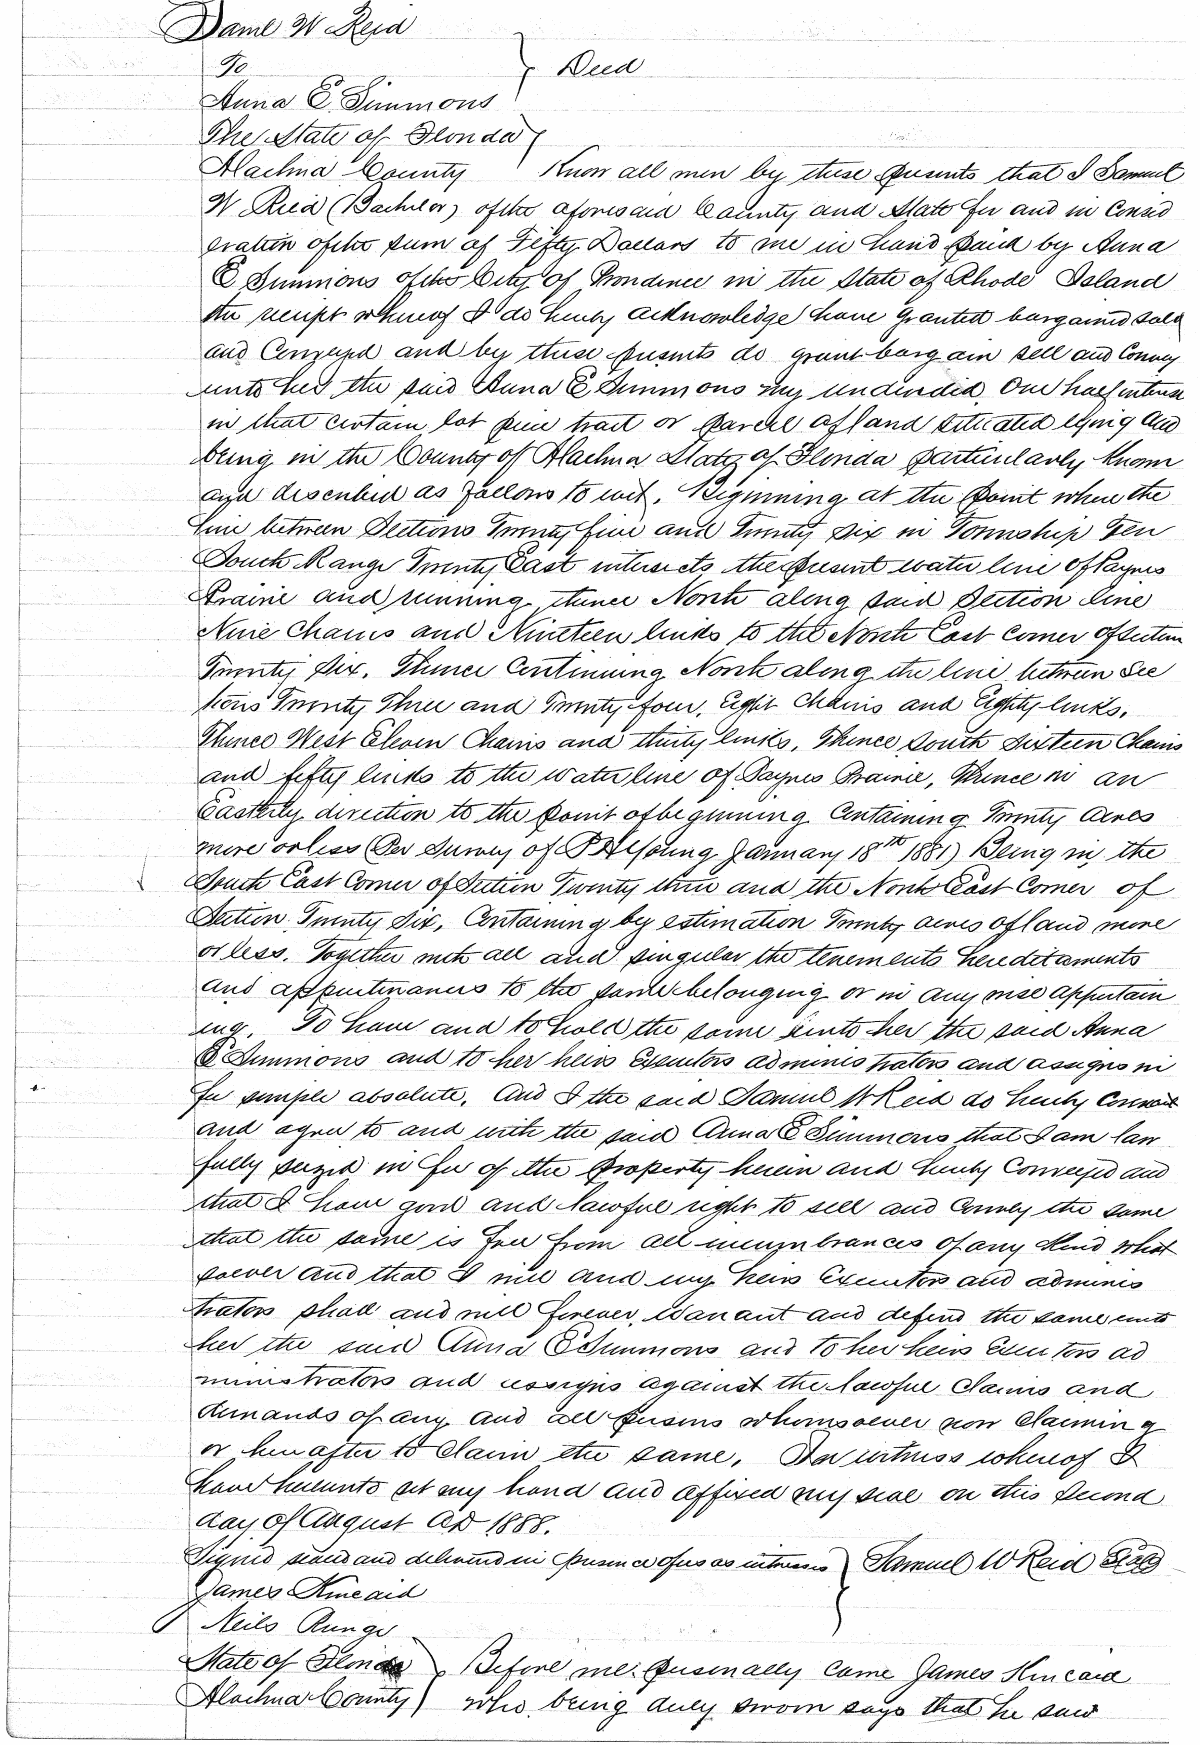 Saml W Reid
To } Deed
Anna E. Simmons
The State of Florida }
Alachua County Know all men by these presents that I Samuel
W Reid (Bachelor) of the aforesaid County and State for and in Consid
eration of the sum of Fifty Dollars to me in hand paid by Anna
E Simmons of the City of Providence in the State of Rhode Island
the receipt whereof I do hereby acknowledge have granted bargained sold
and Conveyed and by these presents do grant bargain sell and Convey
unto her the said Anna E Simmons my undivided One half interest
in that certain lot piece tract or parcel of land situated lying and
being in the County of Alachua State of Florida particularly known
and described as follows to wit. Beginning at the point where the
line between Sections Twenty five and Twenty Six in Township Ten
South Range Twenty East intersects the present water line of Paynes
Prairie and running thence North along said Section line
Nine Chains and Nineteen links to the North East Corner of Section
Twenty Six. Thence Continuing North along the line between Sec
tions Twenty Three and Twenty four, Eight Chains and Eighty links,
Thence West Eleven Chains and thirty links, Thence South Sixteen Chains
and fifty links to the water line of Paynes Prairie, Thence in an
Easterly direction to the point of beginning Containing Twenty Acres
more or less (Per Survey of P H Young January 18th 1881) Being in the
South East Corner of Section Twenty three and the North East Corner of
Section Twenty Six, Containing by estimation Twenty acres of land more
or less. Together with all and singular the tenements hereditaments
and appurtenances to the same belonging or in any wise appertain
ing. To have and to hold the same unto her the said Anna
E Simmons and to her heirs Executors administrators and assigns in
fee simple absolute. And I the said Samuel W Reid do hereby Covenant
and agree to and with the said Anna E Simmons that I am law
fully seized in fee of the property herein and hereby Conveyed and
that I have good and lawful right to sell and Convey the same
that the same is free from all incumbrances of any kind what
soever and that I will and my heirs Executors and adminis
trators shall and will forever warrant and defend the same unto
her the said Anna E Simmons and to her heirs Executors ad
ministrators and assigns against the lawful Claims and
demands of any and all persons whomsoever now Claiming
or hereafter to Claim the same. In witness whereof I
have hereunto set my hand and affixed my seal on this Second
day of August AD 1888.
Signed sealed and delivered in presence of us as witnesses } Samuel W Reid Seal
James Kincaid
Neils Runge
State of Florida } Before me personally came James Kincaid
Alachua County } who being duly sworn says that he saw